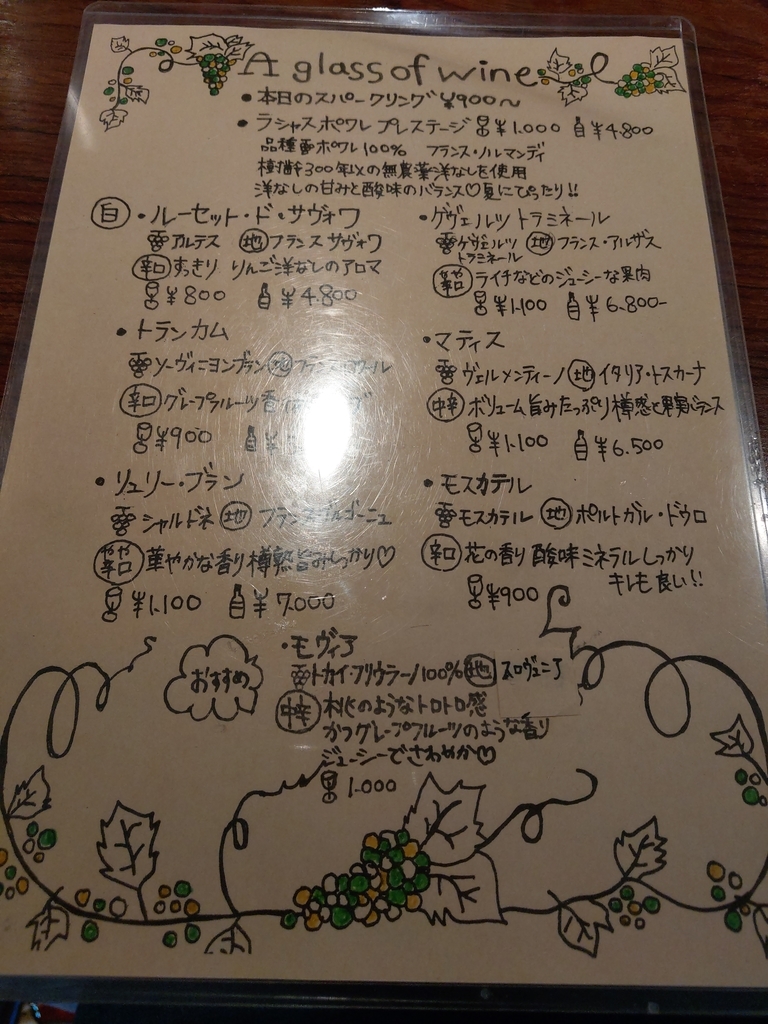 A glass of wine
・本日のスパークリング ¥900〜
・ラシャスポワレ プレステージ ¥1.000 ¥4.800
品種 ポワレ100% フランス・ノルマンディ
樹齢300年以上の無農薬洋なしを使用
洋なしの甘みと酸味のバランス♡夏にぴったり!!
白 ・ルーセット・ド・サヴォワ
アルテス 地 フランスサヴォワ
辛口 すっきり りんご洋なしのアロマ
¥800 ¥4.800
・トランカム
ソーヴィニヨンブラン 地 フランス
辛口 グレープフルーツ香
¥900
・リュリー・ブラン
シャルドネ 地 フランスブルゴーニュ
やや辛口 華やかな香り樽熟旨みしっかり♡
¥1.100 ¥7.000
・ゲヴェルツトラミネール
ゲヴェルツ 地 フランス・アルザス
トラミネール
やや辛口 ライチなどのジューシーな果肉
¥1.100 ¥6.800-
・マティス
ヴェルメンティーノ 地 イタリア・トスカーナ
中辛 ボリューム旨みたっぷり樽感と果実バランス
¥1.100 ¥6.500
・モスカテル
モスカテル 地 ポルトガル・ドウロ
辛口 花の香り 酸味ミネラルしっかり
キレも良い!!
¥900
おすすめ
・モヴィア
トカイ・フリウラーノ100% 地 スロヴェニア
中辛 桃のようなトロトロ感
かつグレープフルーツのような香り
ジューシーでさわやか♡
1.000